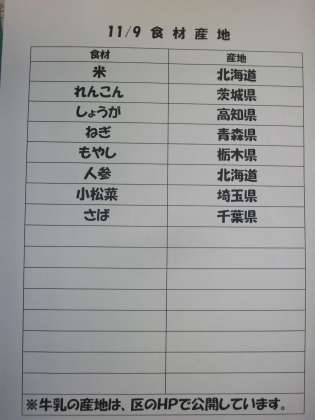 11/9 食材産地
食材 産地
米 北海道
れんこん 茨城県
しょうが 高知県
ねぎ 青森県
もやし 栃木県
人参 北海道
小松菜 埼玉県
さば 千葉県
※牛乳の産地は、区のHPで公開しています。